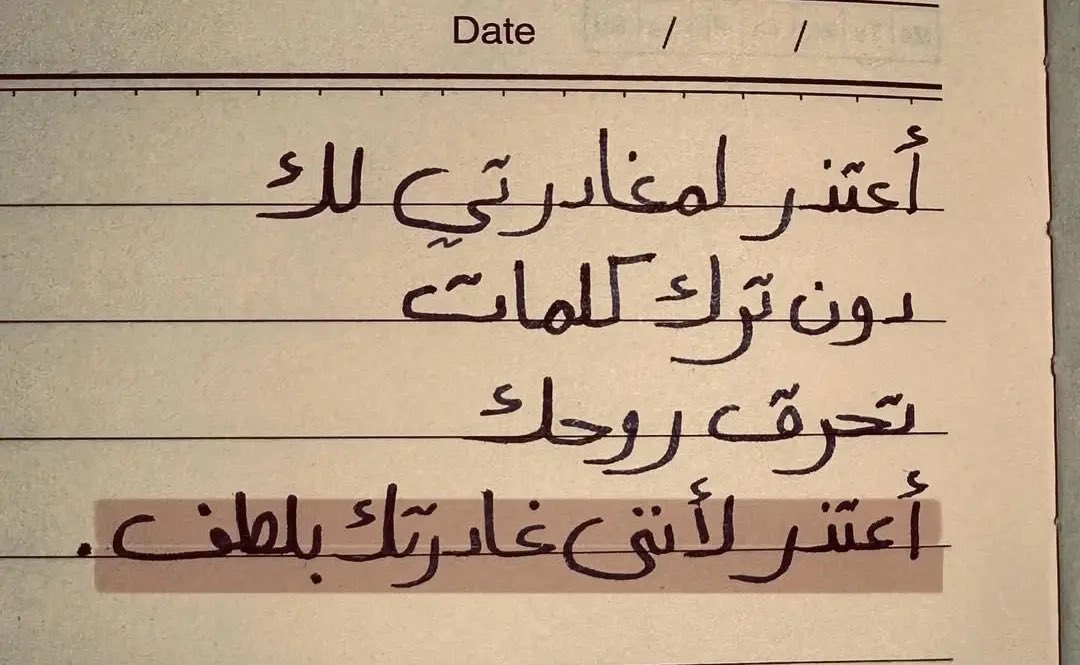 Date / /
أعتذر لمغادرتي لك
دون ترك كلمات
تحرق روحك
أعتذر لأنني غادرتك بلطف.